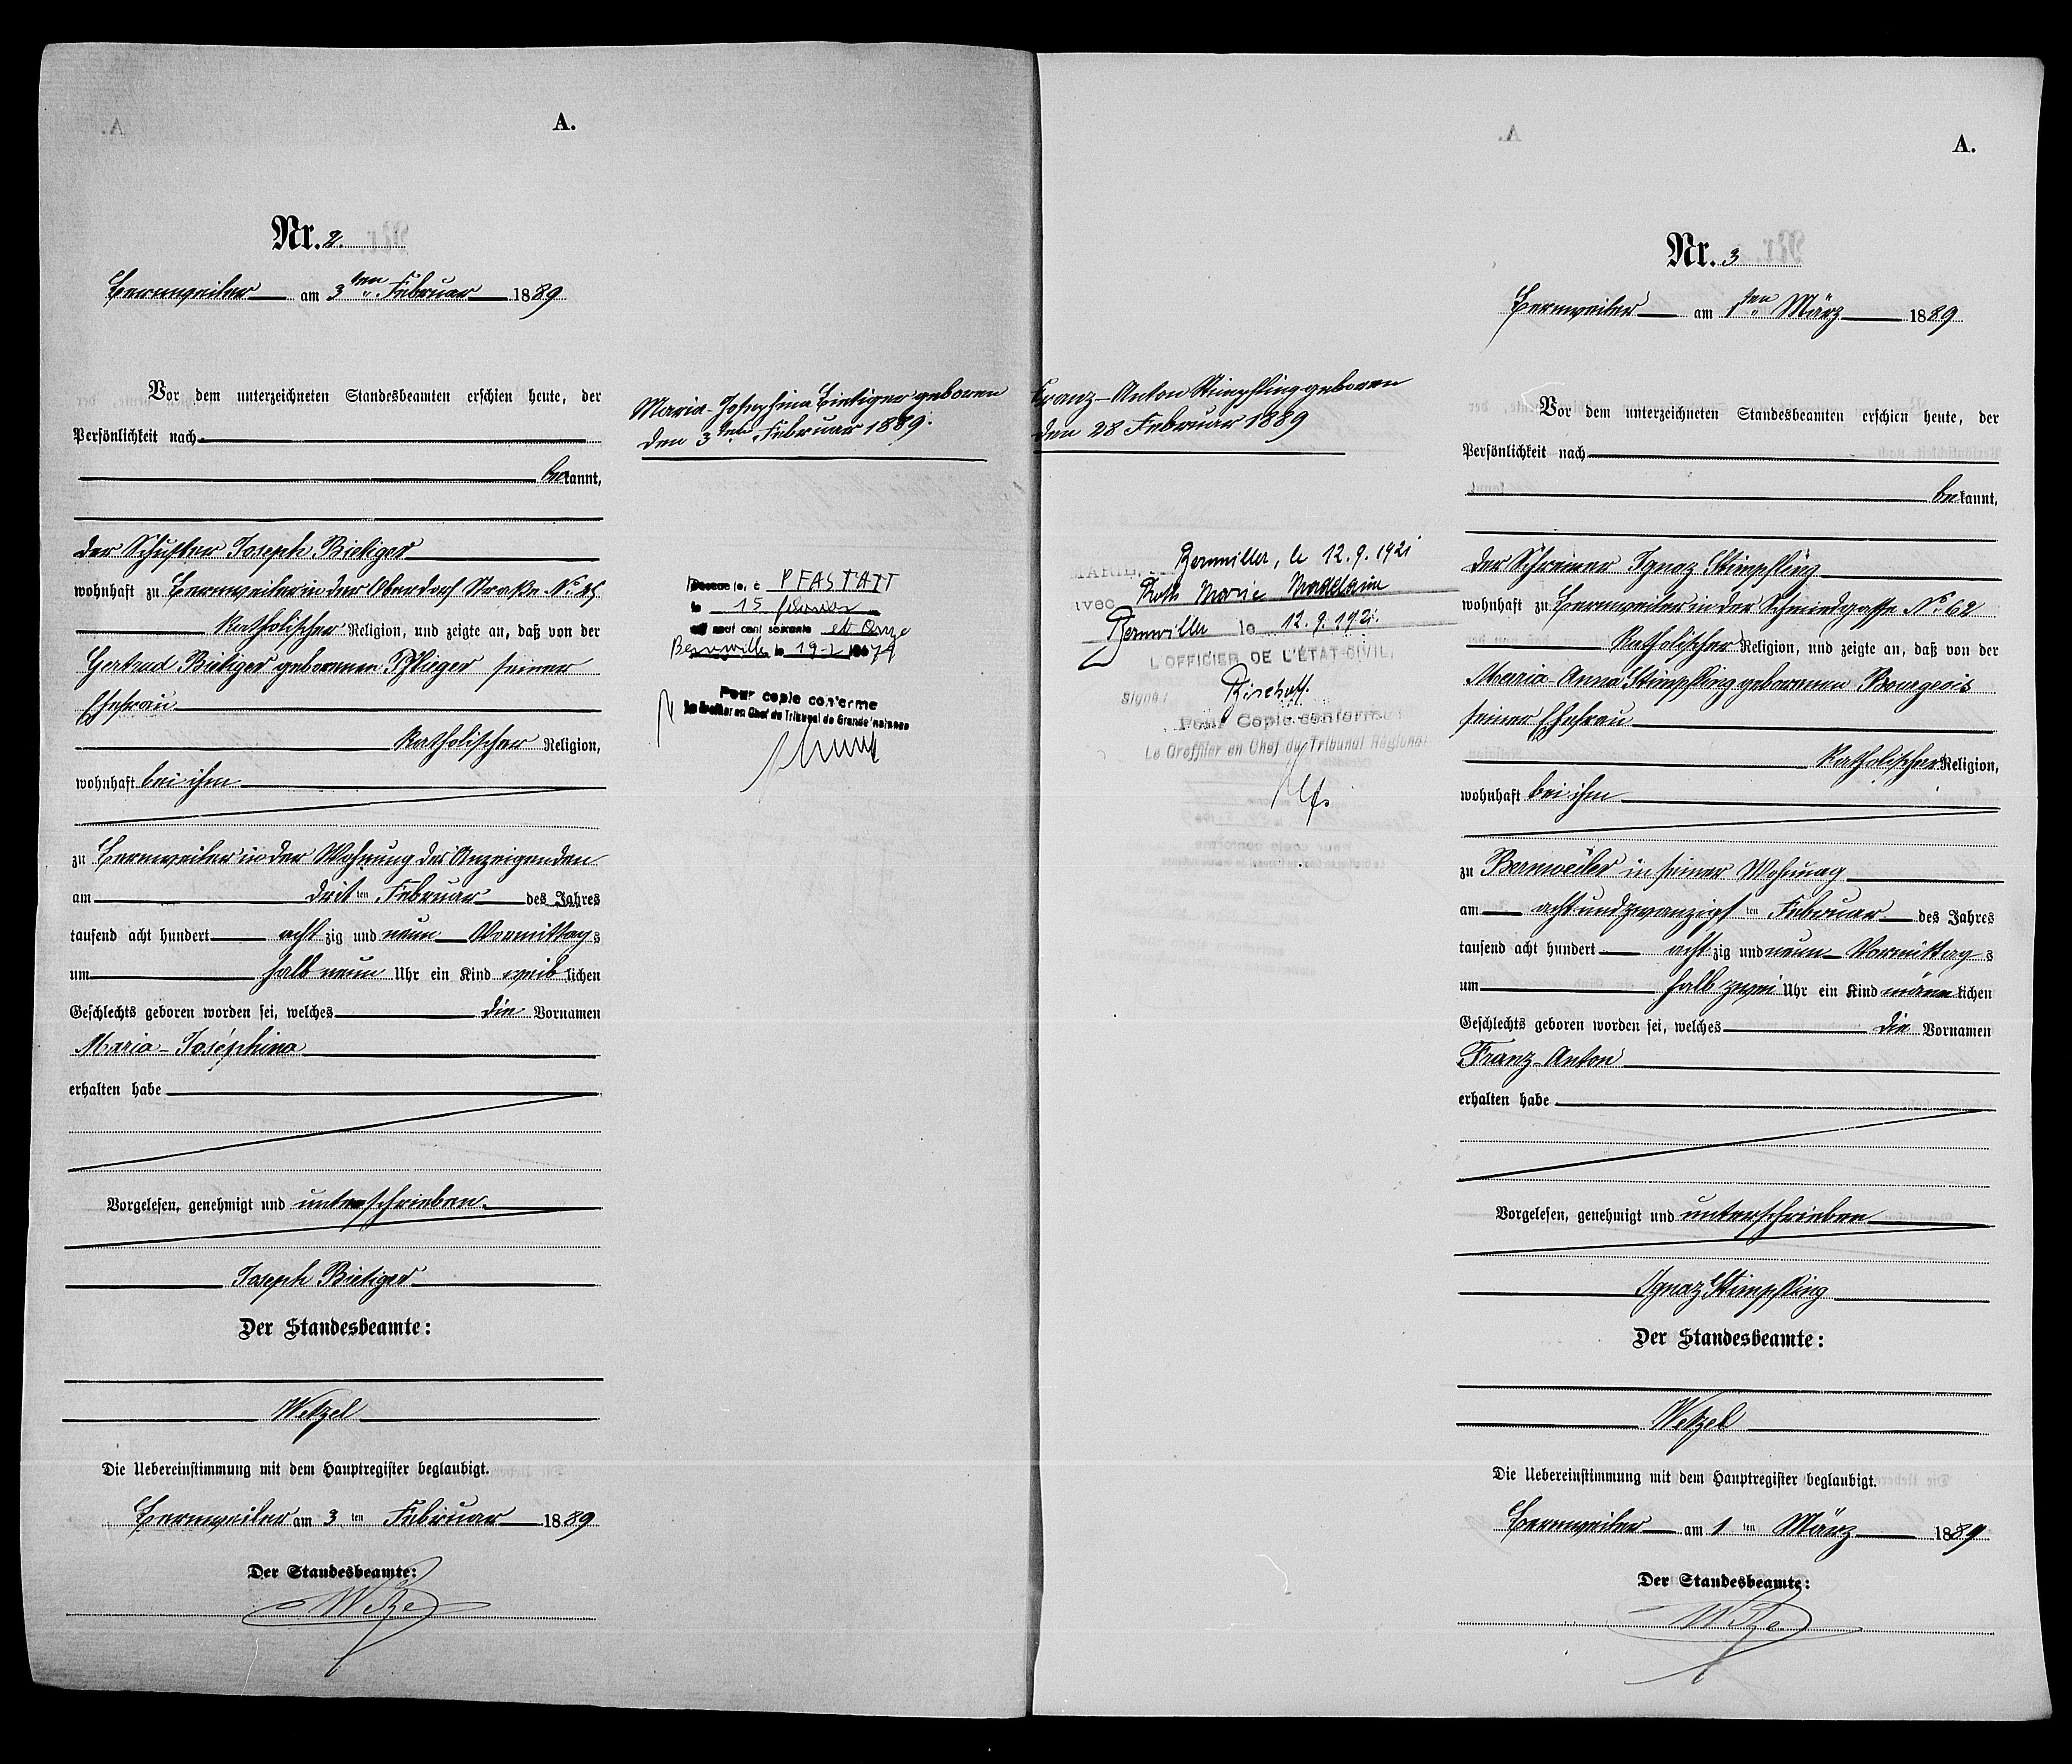 A.
Nr. 2.
Bernweiler am 3ten Februar 1889
Vor dem unterzeichneten Standesbeamten erschien heute, der
Persönlichkeit nach
bekannt,
der Schuster Joseph Bietiger
wohnhaft zu Bernweiler in der Oberdorf Straße No.
katholischer Religion, und zeigte an, daß von der
Gertrud Bietiger geborenen Pflieger seiner
Ehefrau
katholischer Religion,
wohnhaft bei ihm
zu Bernweiler in der Wohnung des Anzeigenden
am dritten Februar des Jahres
tausend acht hundert achtzig und neun Vormittags
um halb neun Uhr ein Kind weiblichen
Geschlechts geboren worden sei, welches die Vornamen
Maria-Joséphina
erhalten habe
Vorgelesen, genehmigt und unterschrieben.
Joseph Bietiger
Der Standesbeamte:
Wetzel
Die Uebereinstimmung mit dem Hauptregister beglaubigt.
Bernweiler am 3ten Februar 1889
Der Standesbeamte:
Maria-Josephina Bietiger geboren
den 3ten Februar 1889.
PFASTATT
le 15 février
neuf cent soixante et onze
Bernwiller le 19-2 1971
Pour copie conforme
Le Greffier en Chef du Tribunal de Grande Instance
Franz-Anton Stimpfling geboren
den 28 Februar 1889
Bernwiller, le 12.9.1921
avec Roth Marie Madelaine
Bernwiller le 12.9.1921.
L'OFFICIER DE L'ÉTAT-CIVIL,
Signé: Bischoff.
Pour Copie conforme
Le Greffier en Chef du Tribunal Régional
A.
Nr. 3
Bernweiler am 1ten März 1889
Vor dem unterzeichneten Standesbeamten erschien heute, der
Persönlichkeit nach
bekannt,
der Schreiner Ignaz Stimpfling
wohnhaft zu Bernweiler in der Schmiedgasse No. 62
katholischer Religion, und zeigte an, daß von der
Maria Anna Stimpfling geborenen Bourgeois
seiner Ehefrau
katholischer Religion,
wohnhaft bei ihm
zu Bernweiler in seiner Wohnung
am achtundzwanzigsten Februar des Jahres
tausend acht hundert achtzig und neun Vormittags
um halb zwei Uhr ein Kind männlichen
Geschlechts geboren worden sei, welches die Vornamen
Franz-Anton
erhalten habe
Vorgelesen, genehmigt und unterschrieben
Ignaz Stimpfling
Der Standesbeamte:
Wetzel
Die Uebereinstimmung mit dem Hauptregister beglaubigt.
Bernweiler am 1ten März 1889
Der Standesbeamte: